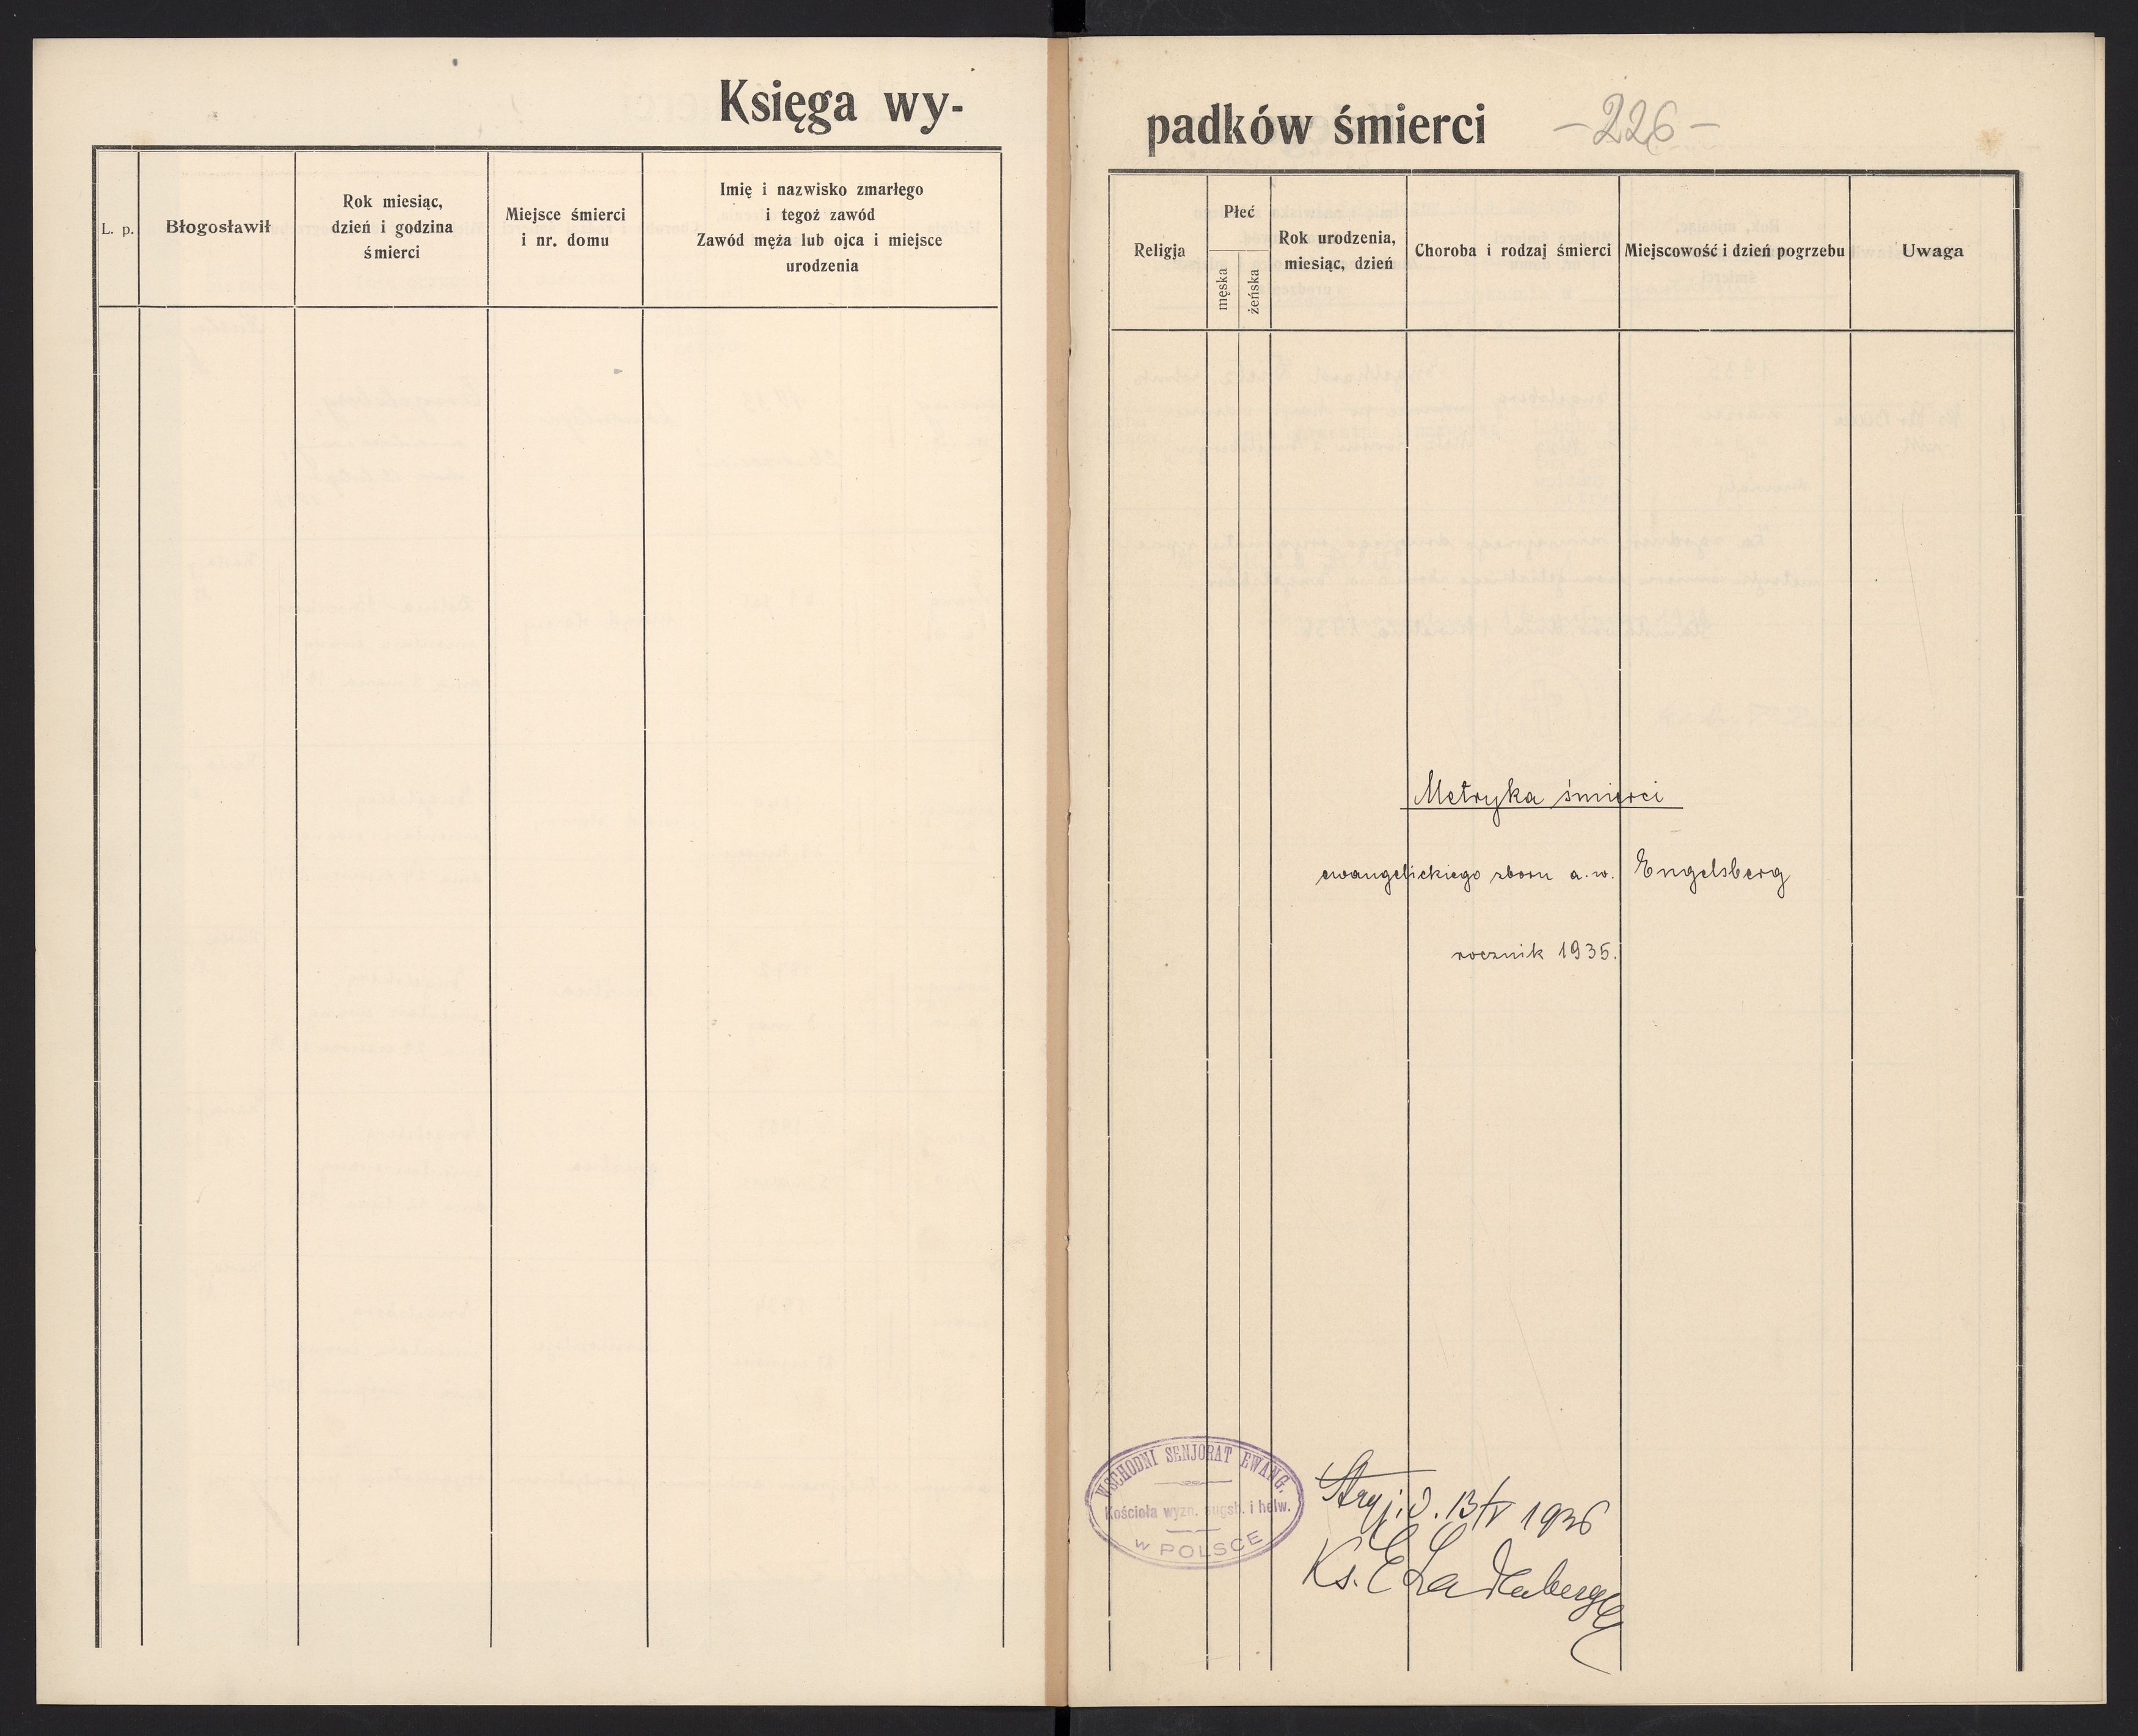 Księga wy-
L. p.
Błogosławił
Rok miesiąc,
dzień i godzina
śmierci
Miejsce śmierci
i nr. domu
Imię i nazwisko zmarłego
i tegoż zawód
Zawód męża lub ojca i miejsce
urodzenia
padków śmierci -226-
Religja
Płeć
męska
żeńska
Rok urodzenia,
miesiąc, dzień
Choroba i rodzaj śmierci
Miejscowość i dzień pogrzebu
Uwaga
Metryka śmierci
ewangelickiego zboru a.w. Engelsberg
rocznik 1935.
WSCHODNI SENJORAT EWANG.
Kościoła wyzn. augsb. i helw.
w POLSCE
Stryj, d. 13/IV 1936
Ks. E Ladenberger